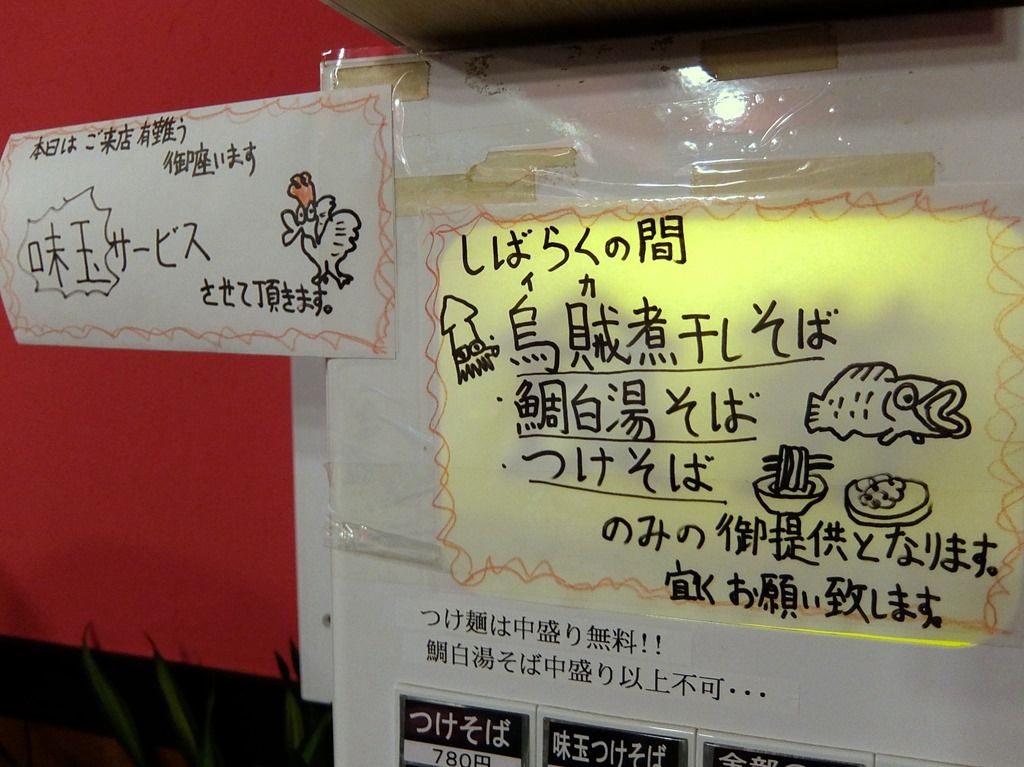 本日は ご来店 有難う
御座います
味玉サービス
させて頂きます。
しばらくの間
イカ
烏賊煮干しそば
・鯛白湯そば
・つけそば
のみの御提供となります。
宜くお願い致します。
つけ麺は中盛り無料!!
鯛白湯そば中盛り以上不可・・・
つけそば
780円
味玉つけそば